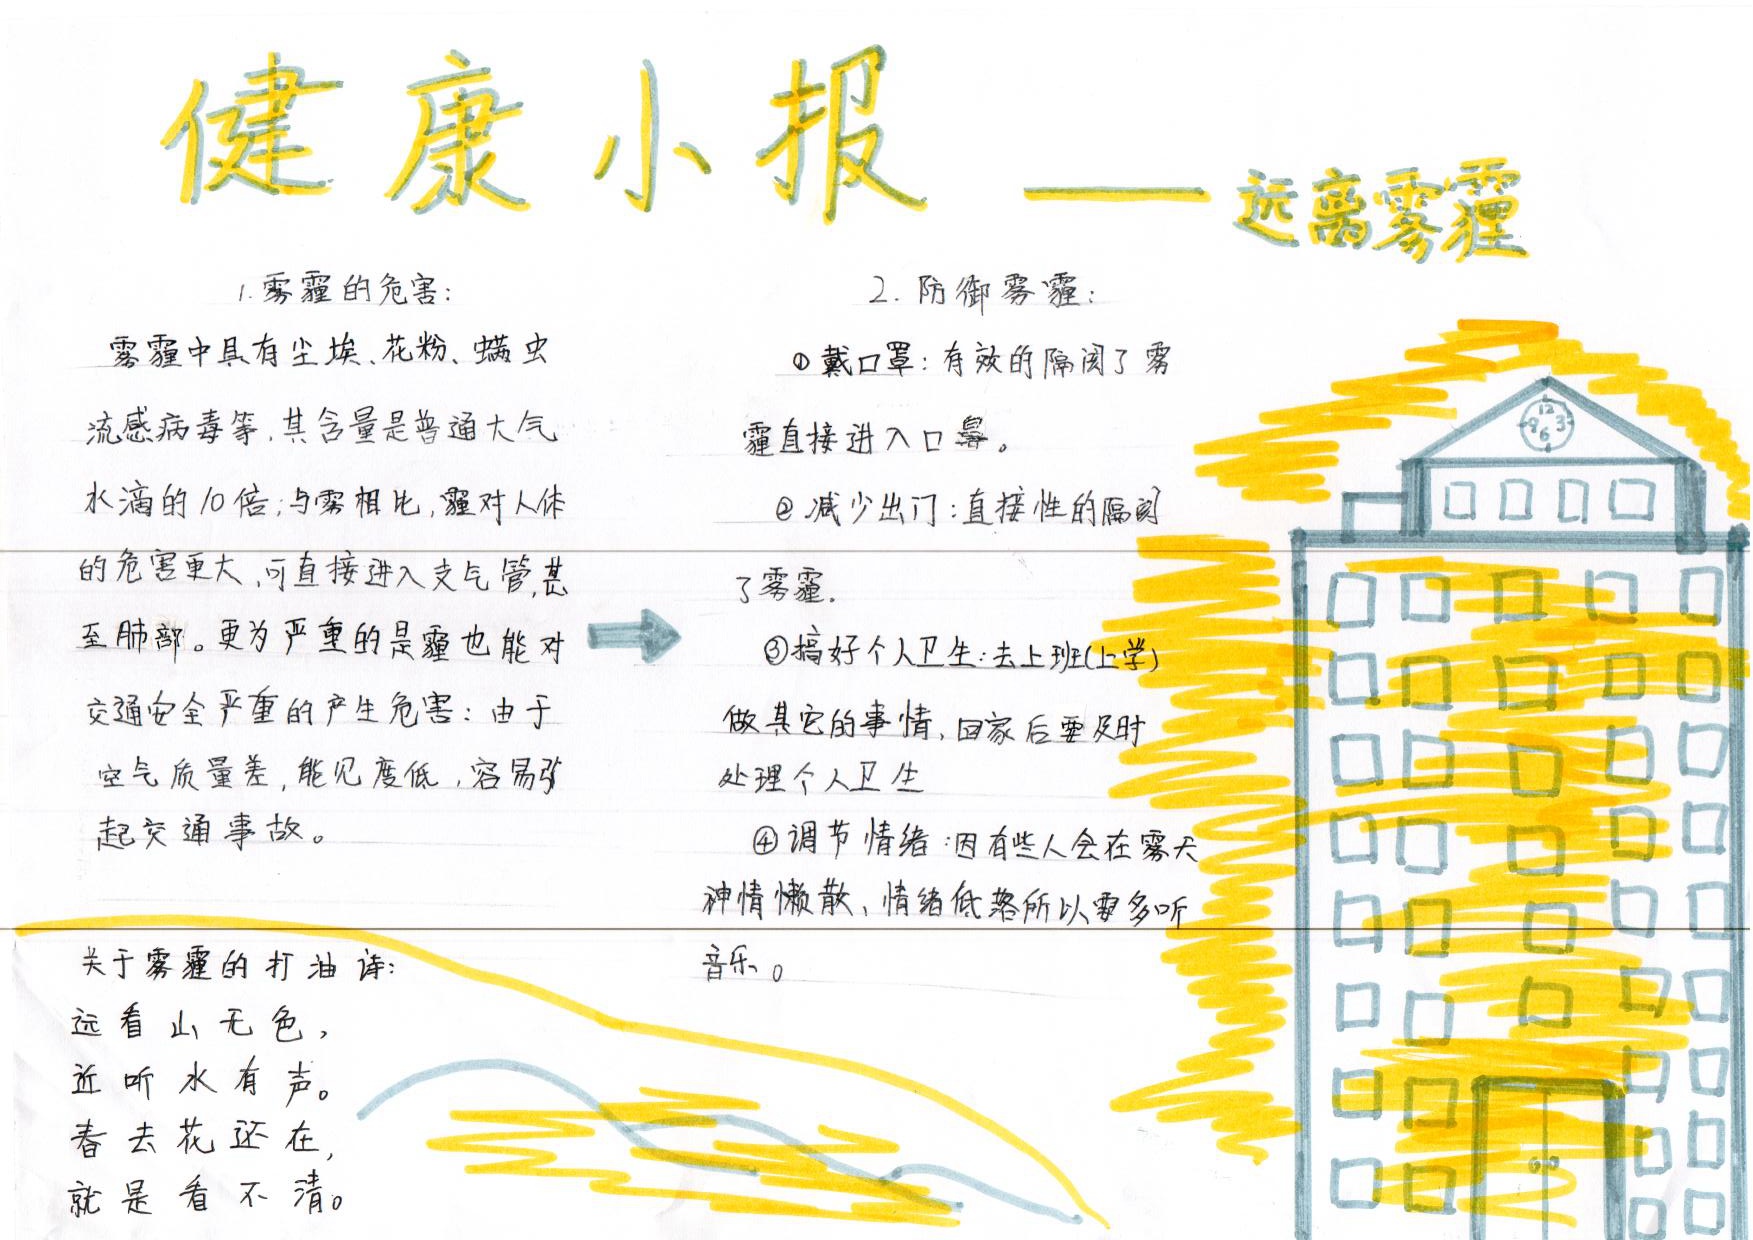 健康小报
——远离雾霾
1.雾霾的危害:
雾霾中具有尘埃、花粉、螨虫
流感病毒等,其含量是普通大气
水滴的10倍;与雾相比,霾对人体
的危害更大,可直接进入支气管,甚
至肺部。更为严重的是霾也能对
交通安全严重的产生危害:由于
空气质量差,能见度低,容易引
起交通事故。
2.防御雾霾:
①戴口罩:有效的隔阂了雾
霾直接进入口鼻。
②减少出门:直接性的隔阂
了雾霾.
③搞好个人卫生:去上班(上学)
做其它的事情,回家后要及时
处理个人卫生
④调节情绪:因有些人会在雾天
神情懒散、情绪低落所以要多听
音乐。
关于雾霾的打油诗:
远看山无色,
近听水有声。
春去花还在,
就是看不清。
12
9 3
6